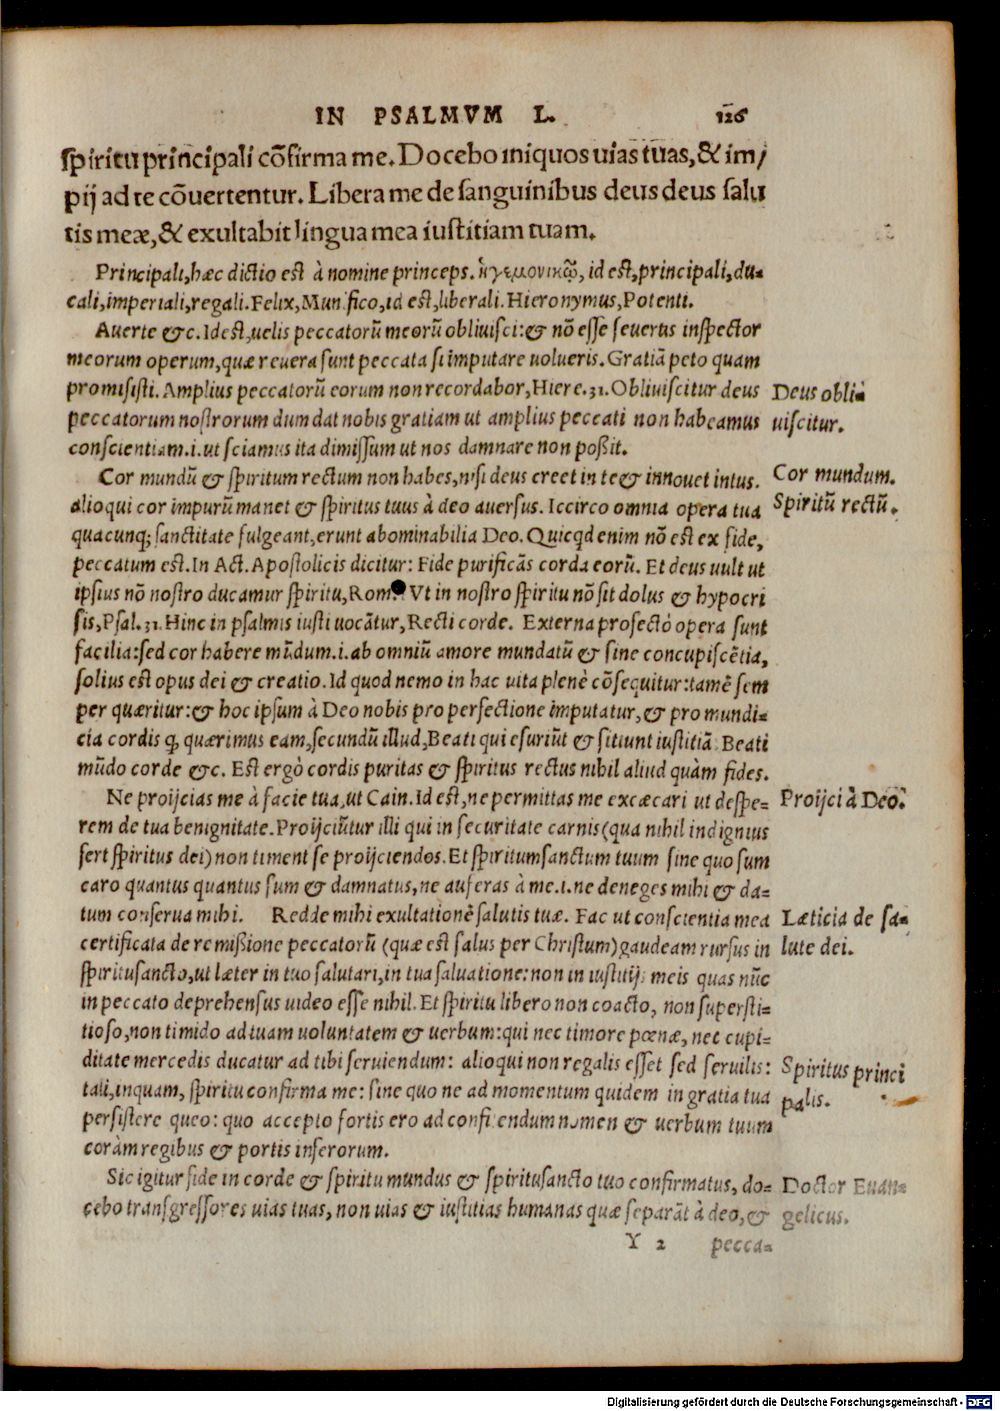 IN PSALMVM L. 126
spiritu principali cõfirma me. Docebo iniquos uias tuas, & im/
pij ad te cõuertentur. Libera me de sanguinibus deus deus salu
tis meæ, & exultabit lingua mea iustitiam tuam.
Principali, hæc dictio est à nomine princeps. ἡγεμονικῷ, id est, principali, du-
cali, imperiali, regali. Felix, Munifico, id est, liberali. Hieronymus, Potenti.
Auerte &c. Id est, uelis peccatorũ meorũ obliuisci: & nõ esse seuerus inspector
meorum operum, quæ reuera sunt peccata si imputare uolueris. Gratiã peto quam
promisisti. Amplius peccatorũ eorum non recordabor, Hiere. 31. Obliuiscitur deus
Deus obli-
peccatorum nostrorum dum dat nobis gratiam ut amplius peccati non habeamus
uiscitur.
conscientiam .i. ut sciamus ita dimissum ut nos damnare non possit.
Cor mundũ & spiritum rectum non habes, nisi deus creet in te & innouet intus.
Cor mundum.
alioqui cor impurũ manet & spiritus tuus à deo auersus. Iccirco omnia opera tua
Spiritũ rectũ.
quacunq; sanctitate fulgeant, erunt abominabilia Deo. Quicqd enim nõ est ex fide,
peccatum est. In Act. Apostolicis dicitur: Fide purificãs corda eorũ. Et deus uult ut
ipsius nõ nostro ducamur spiritu, Rom. Vt in nostro spiritu nõ sit dolus & hypocri
sis, Psal. 31. Hinc in psalmis iusti uocãtur, Recti corde. Externa profectò opera sunt
facilia: sed cor habere mũdum .i. ab omniũ amore mundatũ & sine concupiscẽtia,
solius est opus dei & creatio. Id quod nemo in hac uita plenè cõsequitur: tamẽ sem
per quæritur: & hoc ipsum à Deo nobis pro perfectione imputatur, & pro mundi-
cia cordis q, quærimus eam, secundũ illud, Beati qui esuriũt & sitiunt iustitiã. Beati
mũdo corde &c. Est ergò cordis puritas & spiritus rectus nihil aliud quàm fides.
Ne proijcias me à facie tua, ut Cain. Id est, ne permittas me excæcari ut despe-
Proijci à Deo.
rem de tua benignitate. Proijciũtur illi qui in securitate carnis (qua nihil indignius
fert spiritus dei) non timent se proijciendos. Et spiritumsanctum tuum sine quo sum
caro quantus quantus sum & damnatus, ne auferas à me .i. ne deneges mihi & da-
tum conserua mihi. Redde mihi exultationẽ salutis tuæ. Fac ut conscientia mea
Læticia de sa-
certificata de remissione peccatorũ (quæ est salus per Christum) gaudeam rursus in
lute dei.
spiritusancto, ut læter in tuo salutari, in tua saluatione: non in iustitijs meis quas nũc
in peccato deprehensus uideo esse nihil. Et spiritu libero non coacto, non supersti-
tioso, non timido ad tuam uoluntatem & uerbum: qui nec timore pœnæ, nec cupi-
ditate mercedis ducatur ad tibi seruiendum: alioqui non regalis esset sed seruilis:
Spiritus princi
tali, inquam, spiritu confirma me: sine quo ne ad momentum quidem in gratia tua
palis.
persistere queo: quo accepto fortis ero ad confitendum nomen & uerbum tuum
coràm regibus & portis inferorum.
Sic igitur fide in corde & spiritu mundus & spiritusancto tuo confirmatus, do-
Doctor Euan-
cebo transgressores uias tuas, non uias & iustitias humanas quæ separãt à deo, &
gelicus.
Y 2 pecca-
Digitalisierung gefördert durch die Deutsche Forschungsgemeinschaft - DFG